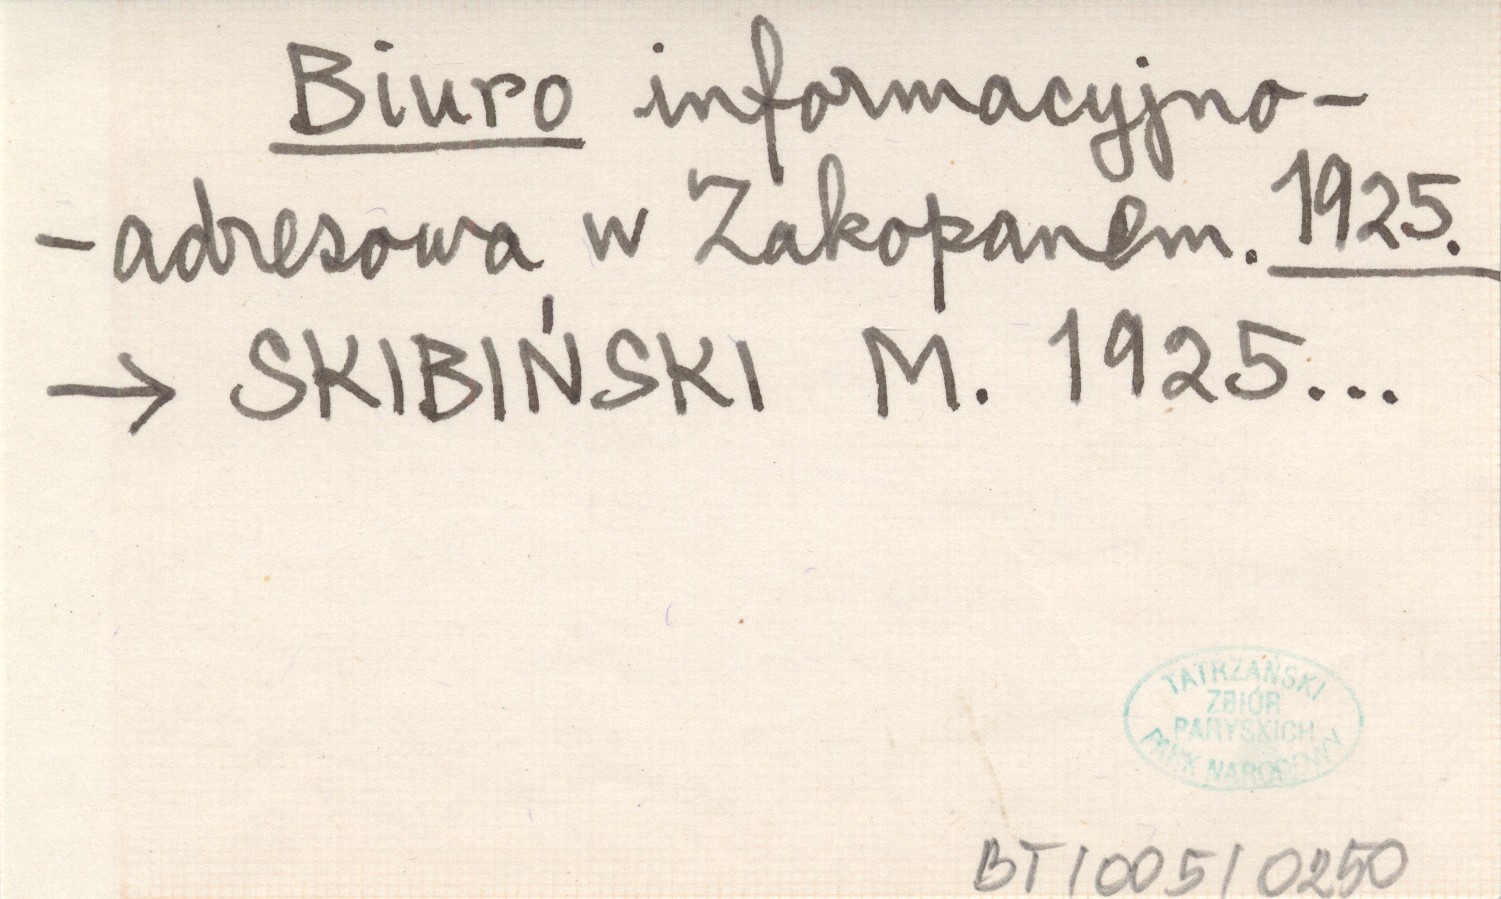 Biuro informacyjno-
-adresowa w Zakopanem. 1925.
→ SKIBIŃSKI M. 1925...
TATRZAŃSKI
ZBIÓR
PARYSKICH
PARK NARODOWY
BT/005/0250